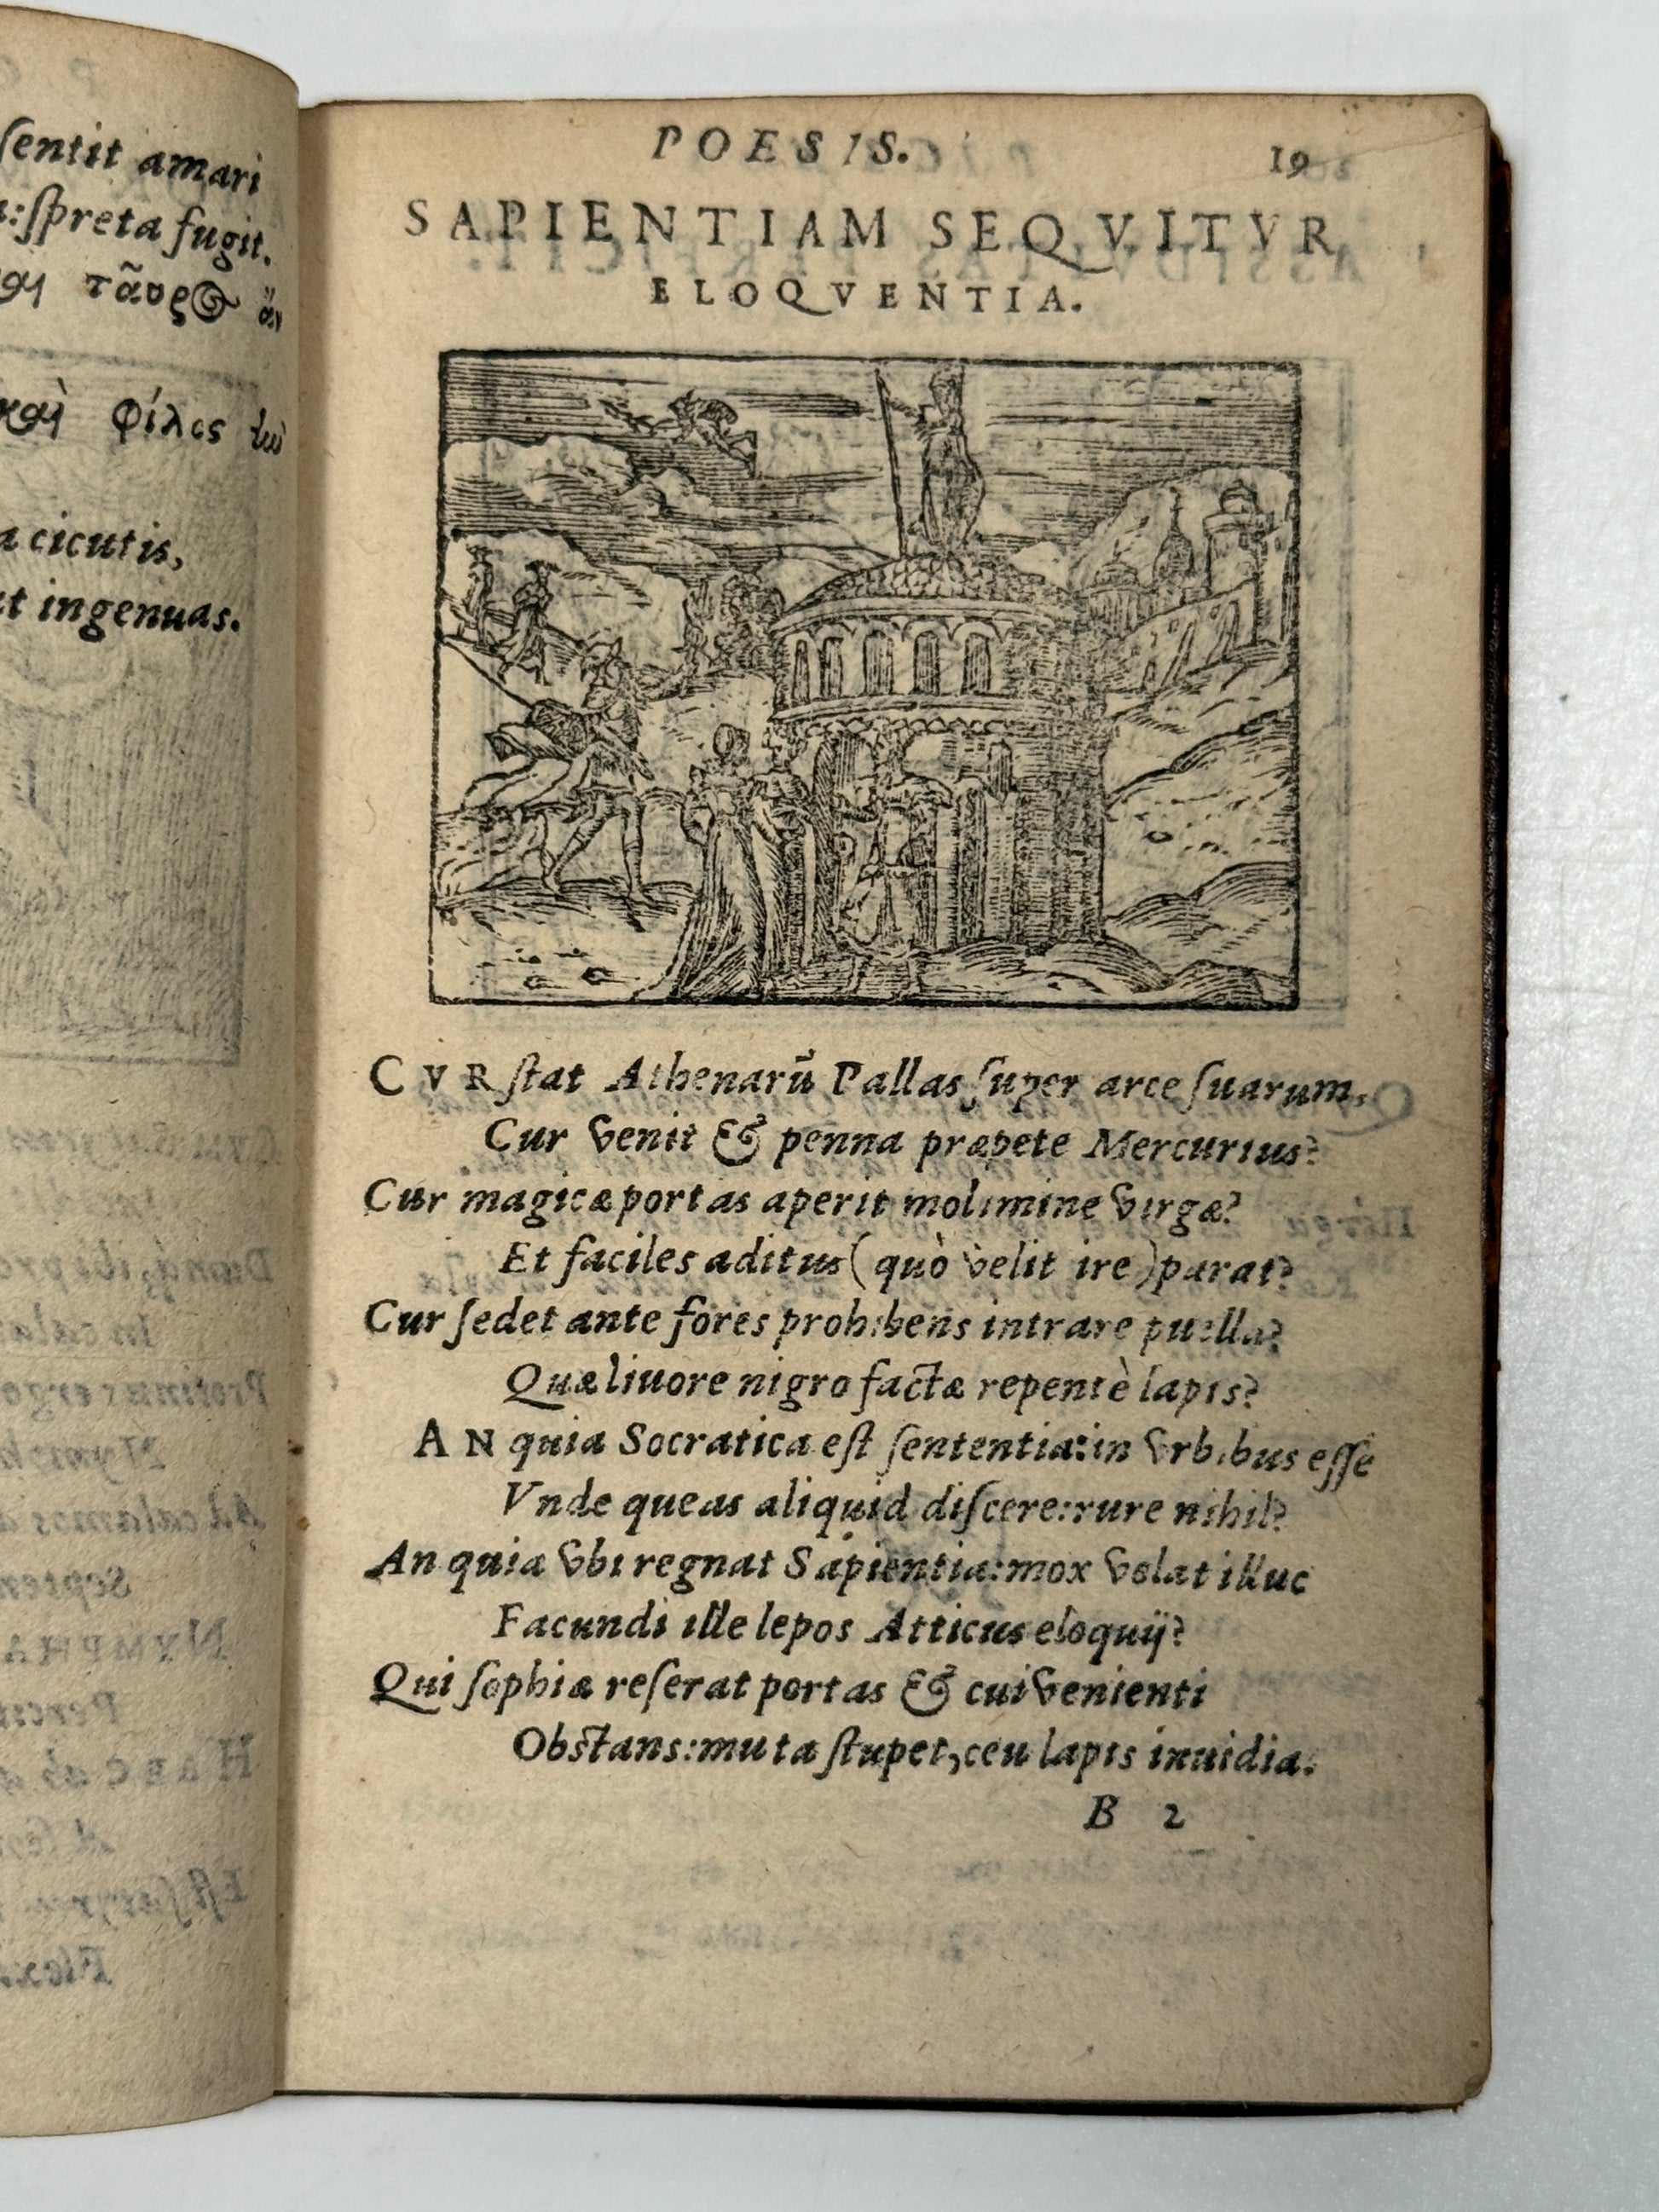 sentit amari
:spreta fugit.
φίλος
a cicutis,
t ingenuas.
POESIS. 19
SAPIENTIAM SEQVITVR
ELOQVENTIA.
CVR ſtat Athenarū Pallas ſuper arce ſuarum,
Cur venit & penna præpete Mercurius?
Cur magicæ portas aperit molimine virgæ?
Et faciles aditus (quò velit ire) parat?
Cur ſedet ante fores prohibens intrare puella?
Quæ liuore nigro facta repentè lapis?
AN quia Socratica eſt ſententia: in vrbibus eſſe
Vnde queas aliquid diſcere: rure nihil?
An quia vbi regnat Sapientia: mox volat illuc
Facundi ille lepos Atticus eloquij?
Qui ſophiæ reſerat portas & cui venienti
Obstans: muta ſtupet, ceu lapis inuidia.
B 2